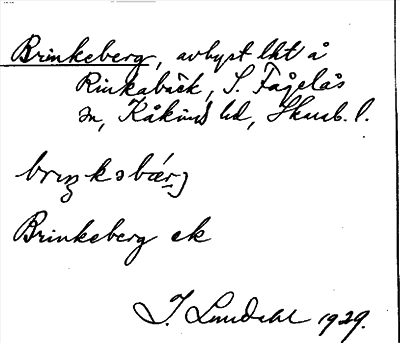 Brinkeberg, avbyst lht å
Rinkabäck, S. Fågelås
sn, Kåkinds hd, Skarab. l.
brıŋkəbærj
Brinkeberg ek
J. Lundahl 1929.